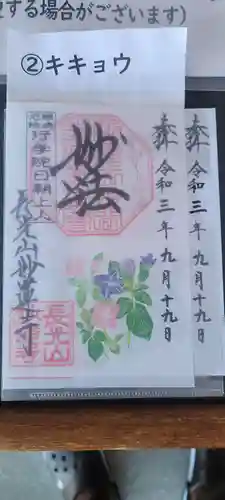 する場合がございます）
②キキョウ
奉拝 令和三年九月十九日
奉拝 令和三年九月十九日
妙法
行学院日朝上人
長光山妙蓮寺
長光山